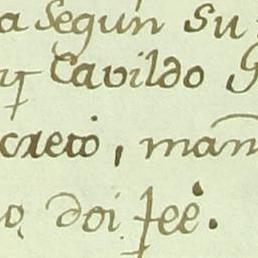 a Según su
Cavildo
creto, man
doi feé.